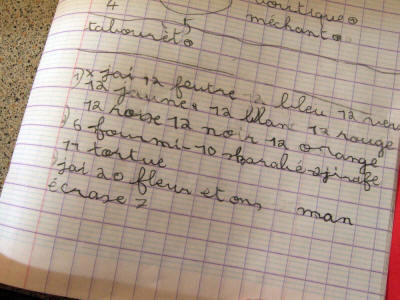 4 5 boutique
tabouret méchant
1) x jai 12 feutre 12 bleu 12 ver
12 jaune 12 blanc 12 rouge
12 rose 12 noir 12 orange
6 fourmi - 10 skarabé girafe
11 tortue
jai 20 fleur et on man
écrase 7